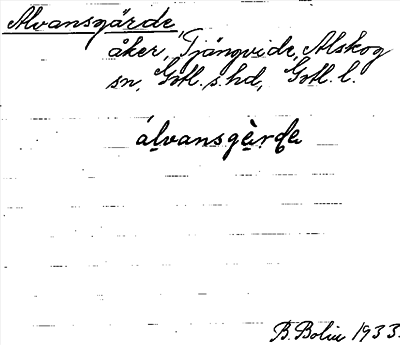 Alvansgärde,
åker, Tjängvide, Alskog
sn, Gotl. s. hd, Gotl. l.
alvansgèrde
B. Bolin 1933.